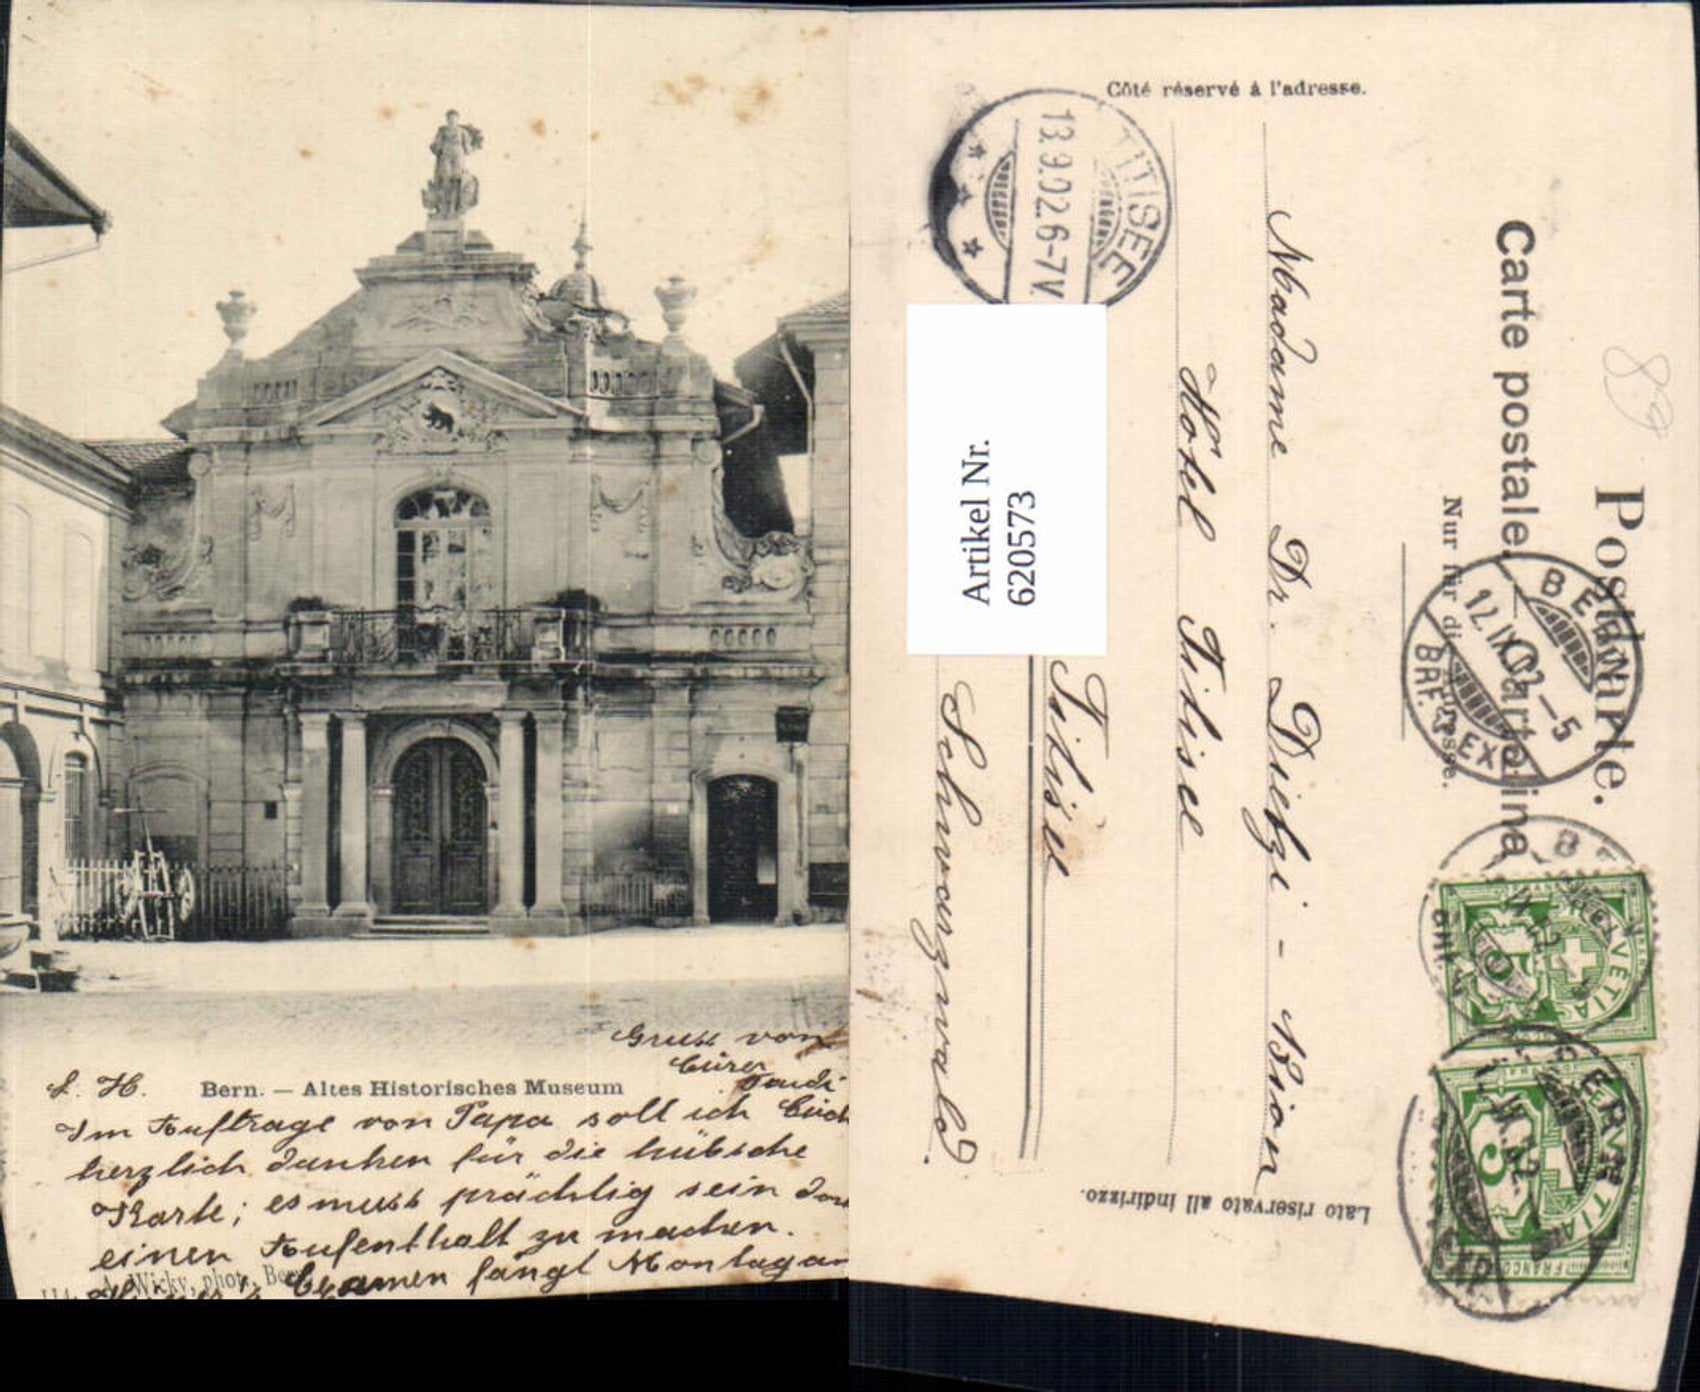 Gruss von
Eürer
L. H. Bern. — Altes Historisches Museum
Im Auftrage von Papa soll ich Euch
herzlich danken für die hübsche
Karte; es muss prächtig sein dort
einen Aufenthalt zu machen.
Examen fängt Montag an
A. Wicky, phot., Bern
Côté réservé à l'adresse.
TITISEE
13.9.02.6-7V.
Artikel Nr.
6205573
Postkarte.
Carte postale. — Cartolina
Nur für die Adresse.
BERN
12.IX.02.—5
BRF. EXP.
89
Madame Dr. Dietzi - Bion
Hôtel Titisee
Titisee
Schwarzwald.
Lato riservato all indirizzo.
HELVETIA
5
FRANCO
HELVETIA
5
FRANCO
BERN
BRF. EXP.